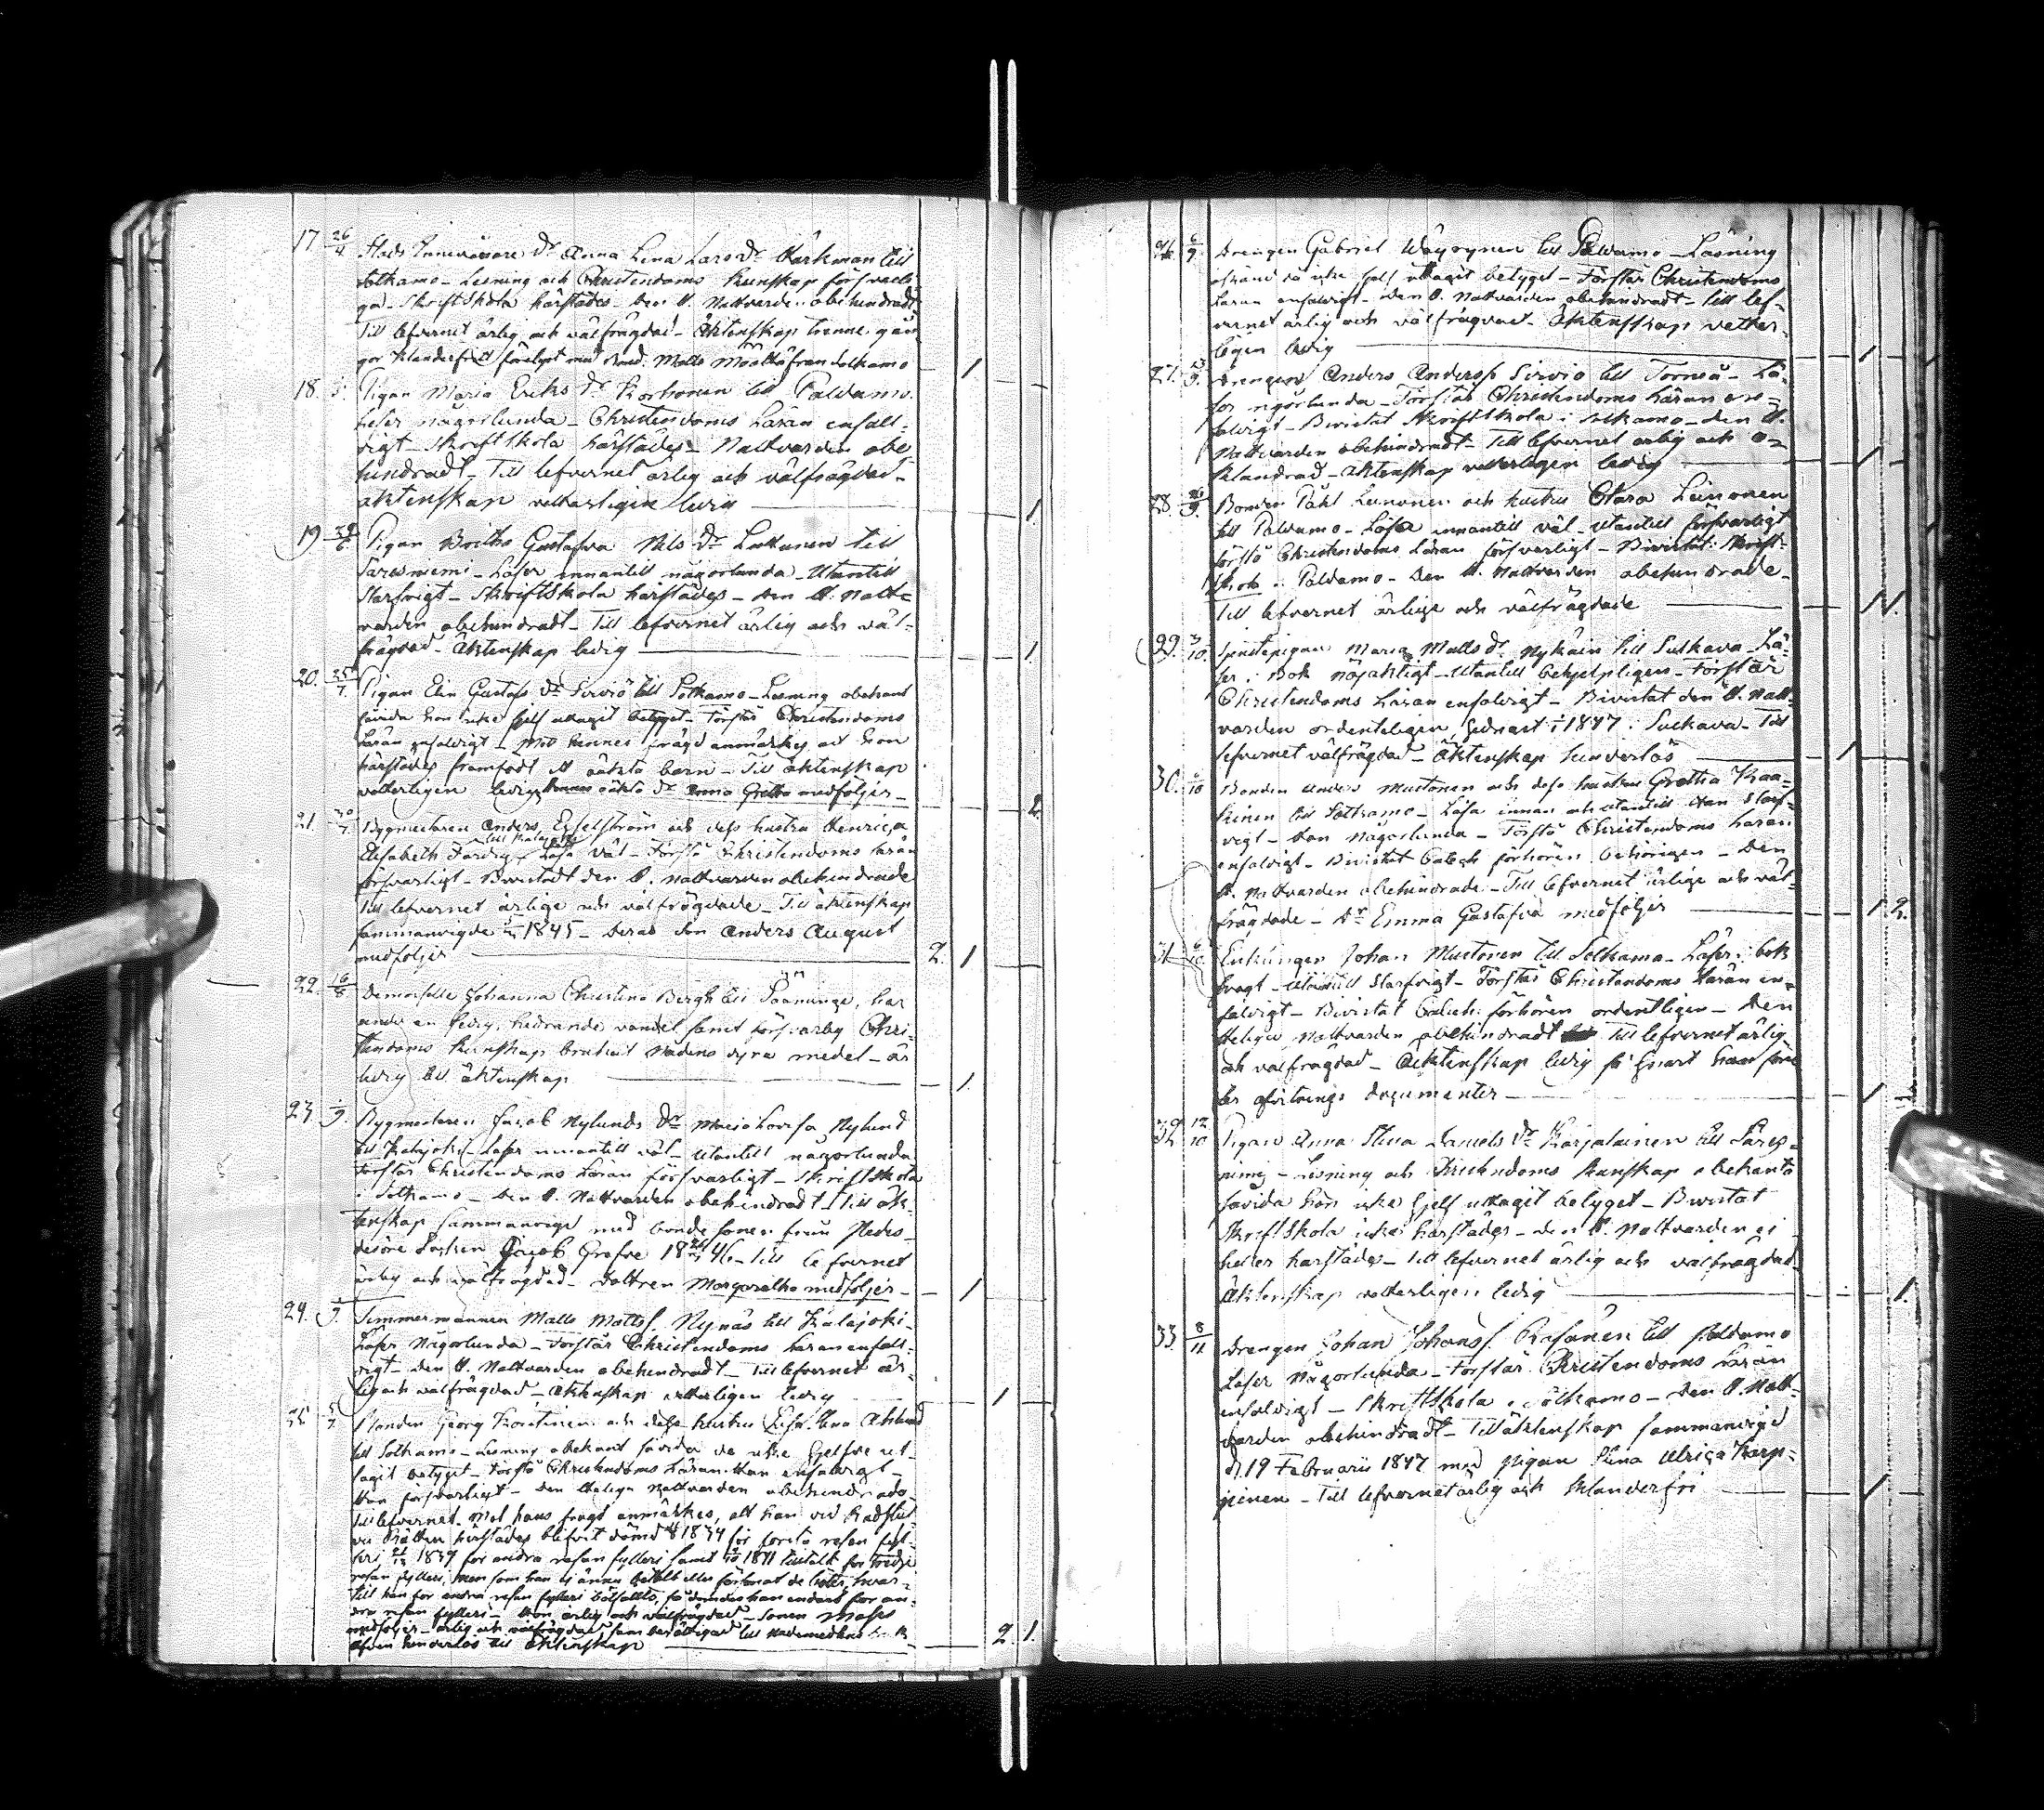 17 26/4 Stads Innevånare Dr Anna Lena Lars Dr Karkman till
Sotkamo - Läsning och Christendoms Kunskap försvarli-
ga - Skriftskola härstädes - Den H. Nattvarden obehindradt
Till lefvernet ärlig och välfrägdad - Äktenskap trenne gån
gor klanderfritt förelyst med Matts Määttä från Sotkamo 1
18. Pigan Maria Eriks Dr Korhonen till Paldamo.
Läser någorlunda - Christendoms Läran enfalt-
digt - Skriftskola härstädes - Nattvarden obe-
hindradt - Till lefvernet ärlig och välfrägdad -
äktenskap vetterligen ledig 1.
19 Pigan Britha Gustafva Nils Dr Lukkunen till
Säresniemi - Läser innantill någorlunda - Utantill
Klarsvigt - Skriftskola härstädes - Den H. Natt-
varden obehindradt - Till lefvernet ärlig och väl-
frägdad - Äktenskap ledig 1.
20. 25/7 Pigan Elin Gustafs Dr Sirviö till Sotkamo - Läsning obekant
såvida hon icke sjelf uttagit betyget - Förstår Christendoms
Läran enfaldigt - Mot hennes frägd anmärkes att hon
härstädes framfödt et oäkta barn - Till äktenskap
vetterligen ledig hennes oäkta Dr Anna Gretha medföljer - 2.
21. 30/7 Bygmästaren Anders Engelström och dess hustru Henrica
till Kalajoki
Elisabeth Färdig - Läsa väl - Förstå Christendoms läran
försvarligt - Bivistadt den H. Nattvarden obehindrade
Till lefvernet ärlige och välfrägdade - Till äktenskap
sammanvigde 1845 - Deras son Anders August
medföljer 2. 1
22. 16/8 Demoiselle Johanna Christina Bergh till Paaminge, har
under en sedig, hedrande vandel samt försvarlig Chri-
stendoms Kunskap brukat Nadens dyra medel - är
ledig till äktenskap 1.
23. Bygmästaren Jacob Nylunds Dr Maria Lovisa Nylund
till Kalajoki - Läser innantill väl - Utantill någorlunda
Förstår Christendoms Läran försvarligt - Skriftskola
i Sotkamo - Den H. Nattvarden obehindradt - Till äk-
tenskap sammanvigd med bonde sonen från Pedes-
desöre Socken Jacob Grefve 1846 - Till lefvernet
ärlig och välfrägdad - Dottren Margaretha medföljer - 1
24. Timmermannen Matts Matts s. Nynäs till Kalajoki -
Läser Någorlunda - Förstår Christendoms Läran enfalt-
digt - Den H. Nattvarden obehindradt - Till lefvernet är-
lig och välfrägdad - Äktenskap vetterligen ledig 1
25. Bonden Georg Korhonen och dess hustru Lisa Stina
till Sotkamo - Läsning obekant såvida de icke sjelfve ut-
tagit betyget - Förstå Christendoms Läran han enfaldigt -
Hon försvarligt - Den Heliga Nattvarden obehindrade
Till lefvernet. Mot hans frägd anmärkes, att han vid Rådstu-
vu Rätten härstädes blifvit dömd 1834 för första resan fyl-
leri, 1839 för andra resan fylleri samt 1841 tilltalt för tredje
resan fylleri, men som han ej ännu betalt eller försonat de böter, hvar-
till han för andra resan fylleri bötfälts, så dömdes han endast för an-
dra resan fylleri - Hon ärlig och välfrägdad - Sonen Mats
medföljer - ärlig och välfrägdad samt berättigad till Nademedlens
äfven hinderlös till äktenskap 2. 1.
26 6/9 Drengen Gabriel Wäyrynen till Paldamo - Läsning
okänd då icke sjelf uttagit betyget - Förstår Christendoms
Läran enfaldigt - Den H. Nattvarden obehindradt - Till lef-
vernet ärlig och välfrägdad - Äktenskap vetter-
ligen ledig 1
27. 13/9 Drengen Anders Anders s. Sirviö till Torneå - Lä-
ser någorlunda - Förstår Christendoms Läran en-
faldigt - Bivistat Skriftskola i Sotkamo - Den H.
Nattvarden obehindradt - Till lefvernet ärlig och o-
klandrad - Äktenskap vetterligen ledig 1
28. 26/9 Bonden Påhl Leinonen och hustru Clara Leinonen
till Paldamo - Läsa innantill väl - Utantill försvarligt
förstå Christendoms Läran försvarligt - Bivistat Skrift-
skola i Paldamo - Den H. Nattvarden obehindrade -
Till lefvernet ärlige och välfrägdade 1 1.
29. 3/10. Tjenstepigan Maria Matts Dr Nykäin till Sulkava - Lä-
ser i Bok nöjaktigt - Utantill behjelpligen - Förstår
Christendoms Läran enfaldigt - Bivistat den H. Natt-
varden ordenteligen, sednast i 1847 i Sulkava - Till
lefvernet välfrägdad - Äktenskap hinderlös 1
30. 6/10 Bonden Anders Mustonen och dess hustru Gretha Kaa-
kinen till Sotkamo - Läsa innan och utantill han Klars-
vigt - Hon Någorlunda - Förstå Christendoms Läran
enfaldigt - Bivistat Catech. förhören behörigen - Den
H. Nattvarden obehindrade - Till lefvernet ärlige och väl-
frägdade - Dr Emma Gustafva medföljer 1 2.
31 6/10 Enklingen Johan Mustonen till Sotkamo - Läser i bok
svagt - Utantill Klarsvigt - Förstår Christendoms Läran en-
faldigt - Bivistat Catech. förhören ordentligen - Den
Heliga Nattvarden obehindradt Till lefvernet ärlig
och välfrägdad - Äktenskap ledig så snart han före-
ter afvitrings documenter 1
32 12/10 Pigan Anna Stina Daniels Dr Karjalainen till Säres-
niemi - Läsning och Christendoms kunskap obekanta
såvida hon icke sjelf uttagit betyget - Bivistat
Skriftskola icke härstädes - Den H. Nattvarden ej
heller härstädes - Till lefvernet ärlig och välfrägdad -
Äktenskap vetterligen ledig 1.
33. 8/11 Drengen Johan Johans s. Räsänen till Paldamo
Läser Någorlunda - Förstår Christendoms Läran
enfaldigt - Skriftskola i Sotkamo - Den H. Natt-
varden obehindradt - Till äktenskap sammanvigd
d. 19 Februarii 1847 med pigan Stina Ulrica Karp-
pinen - Till lefvernet ärlig och klanderfri 1